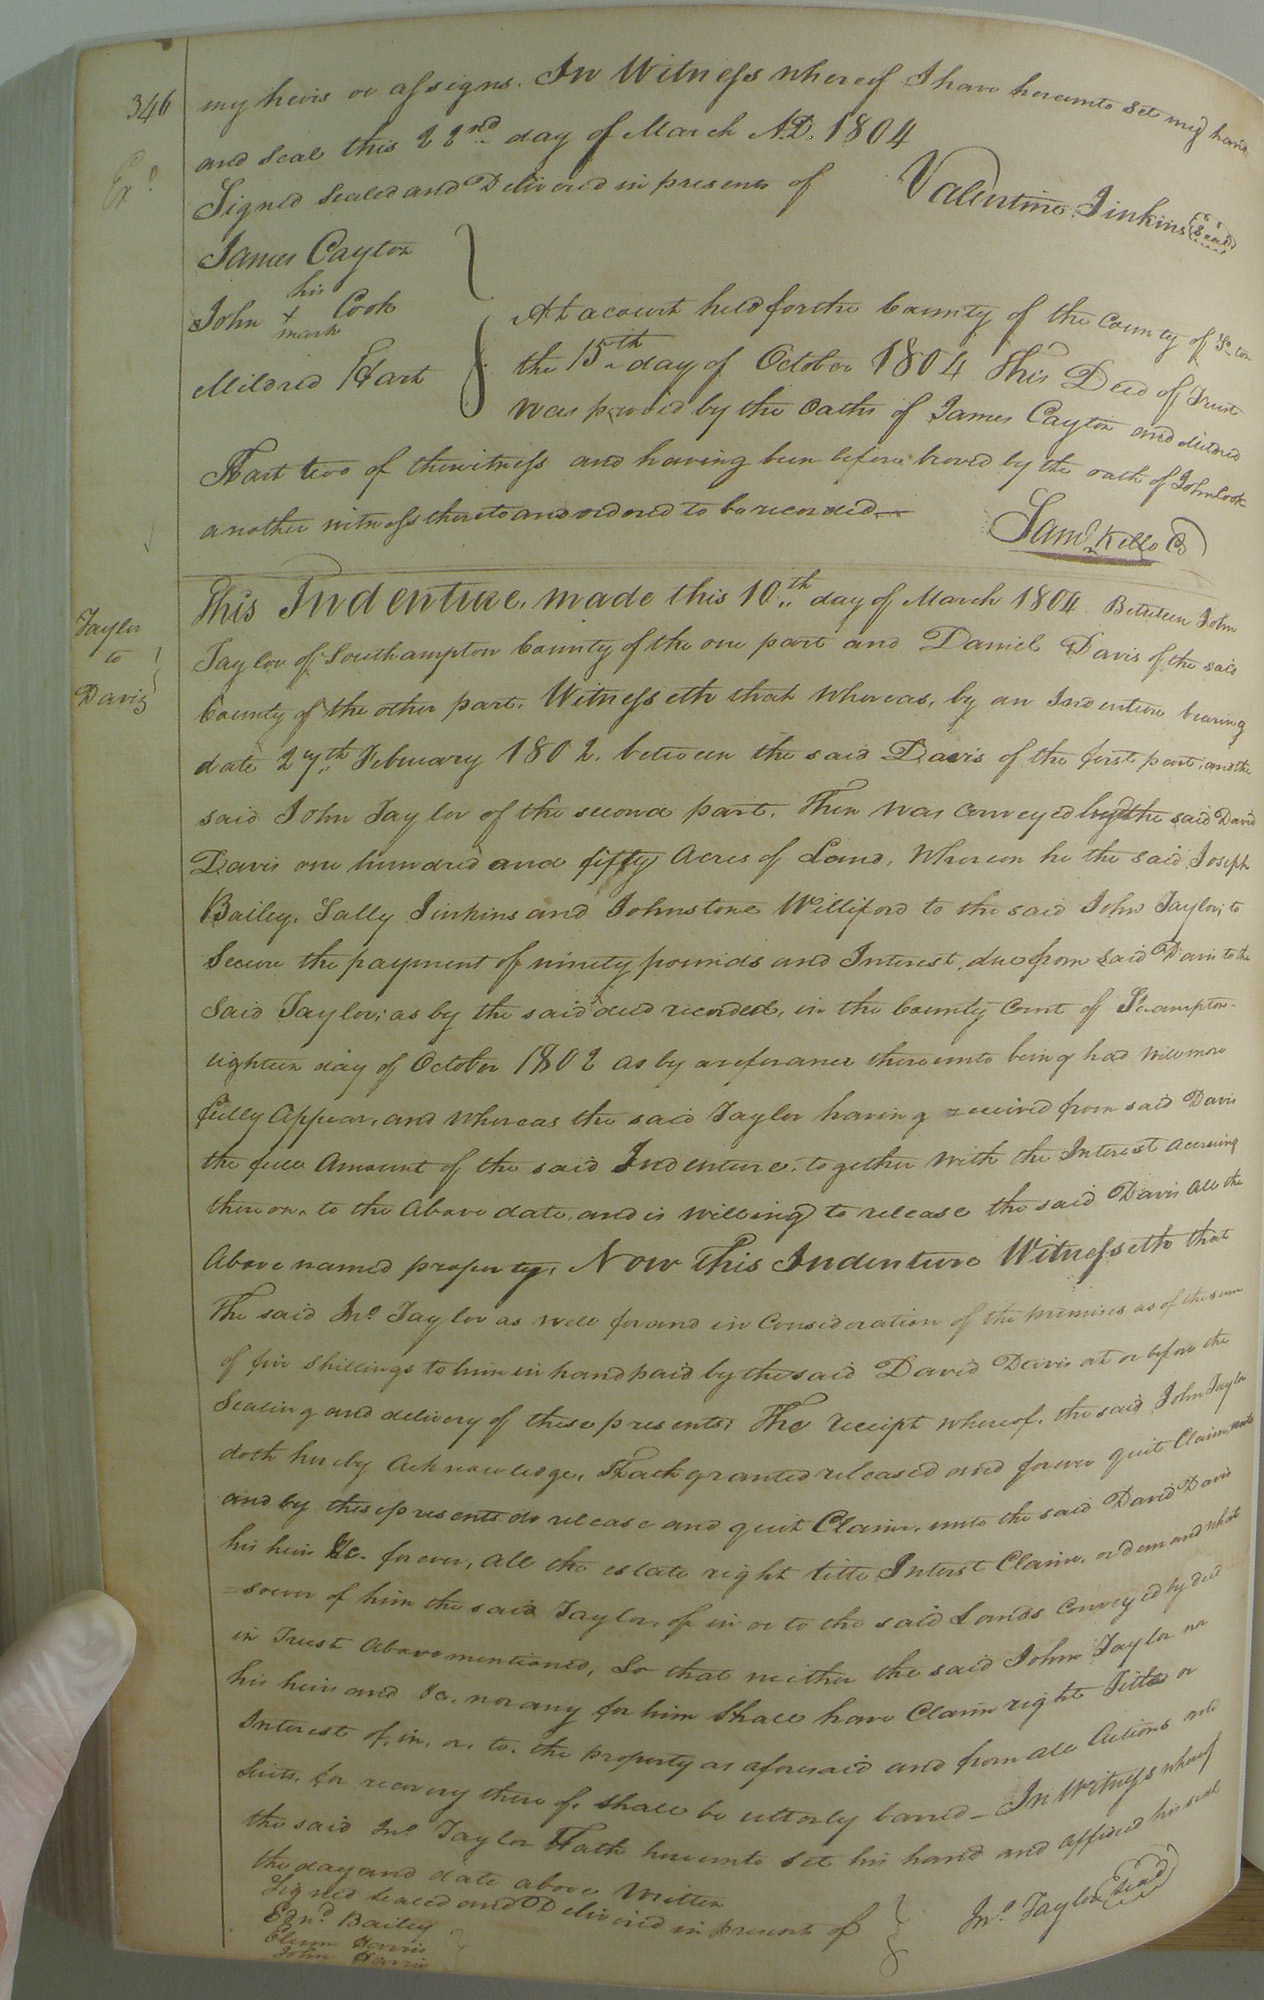 346
my heirs or assigns. In Witness whereof I have hereunto set my hand
and seal this 22nd day of March A.D. 1804
Exd.
Signed Sealed and Delivered in presents of
Valentine Jinkins (Seal)
James Cayton
his
John x Cook
mark
Mildred Hart
At a court held for the County of the County of So.ton
the 15th day of October 1804 This Deed of Trust
was proved by the oaths of James Cayton and Mildred
Hart two of the witness and having been before proved by the oath of John Cook
another witness thereto and ordered to be recorded
Saml. Kello C
Taylor
to
Davis
This Indenture, made this 10th day of March 1804 Between John
Taylor of Southampton County of the one part and Daniel Davis of the said
County of the other part. Witnesseth that whereas, by an Indenture bearing
date 27th February 1802. between the said Davis of the first part, and the
said John Taylor of the second part. Then was conveyed by the said David
Davis one hundred and fifty Acres of Land, Whereon he the said Joseph
Bailey, Sally Jinkins and Johnstone Williford to the said John Taylor, to
Secure the payment of ninety pounds and Interest, due from said Davis to the
Said Taylor; as by the said deed recorded, in the County Court of So.ampton
eighteen day of October 1802 as by a referance thereunto being had will more
fully Appear, and whereas the said Taylor having received from said Davis
the full Amount of the said Indenture, together with the Interest accruing
thereon, to the Above date, and is willing to release the said Davis all the
Above named property, Now This Indenture Witnesseth that
The said Jno. Taylor as well for and in Consideration of the premises as of the sum
of five Shillings to him in hand paid by the said David Davis at or before the
Sealing and delivery of these presents, The receipt whereof, the said John Taylor
doth hereby Acknowledge, Hath granted released and forever quit Claim
and by these presents do release and quit Claim, unto the said David Davis
his heirs &c. forever, all the estate right title Interst Claim, or demand what
=soever of him the said Taylor, of in or to the said Lands Conveyed by deed
in Trust Abovementioned, So that neither the said John Taylor nor
his heirs and &c. nor any for him Shall have Claim right Title or
Interest of, in, or, to, the property as aforesaid and from all Actions and
Suits, for recovery there of, shall be utterly barred - In Witness whereof
the said Jno. Taylor Hath hereunto set his hand and affixed his seal
the day and date above Written
Signed sealed and Delivered in present of
Jno. Taylor (Seal)
Ednd. Bailey
Harris
John Harris